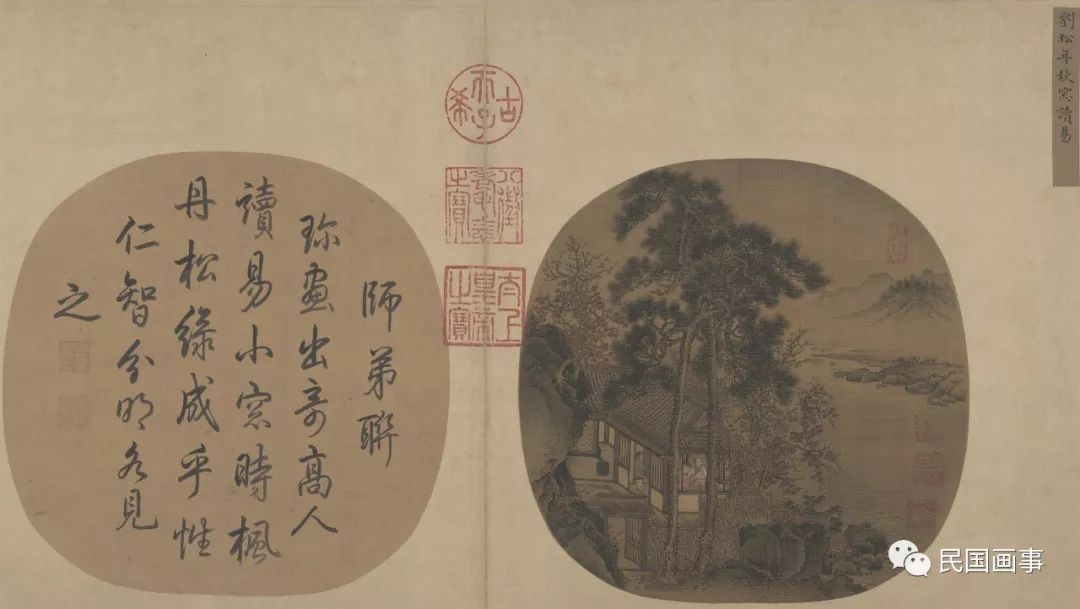 劉松年秋窓讀易
古希天子
八徵耄念之寶
太上皇帝之寶
師弟聯
珎畫出奇高人
讀易小窓時楓
丹松綠成乎性
仁智分明各見
之
民国画事